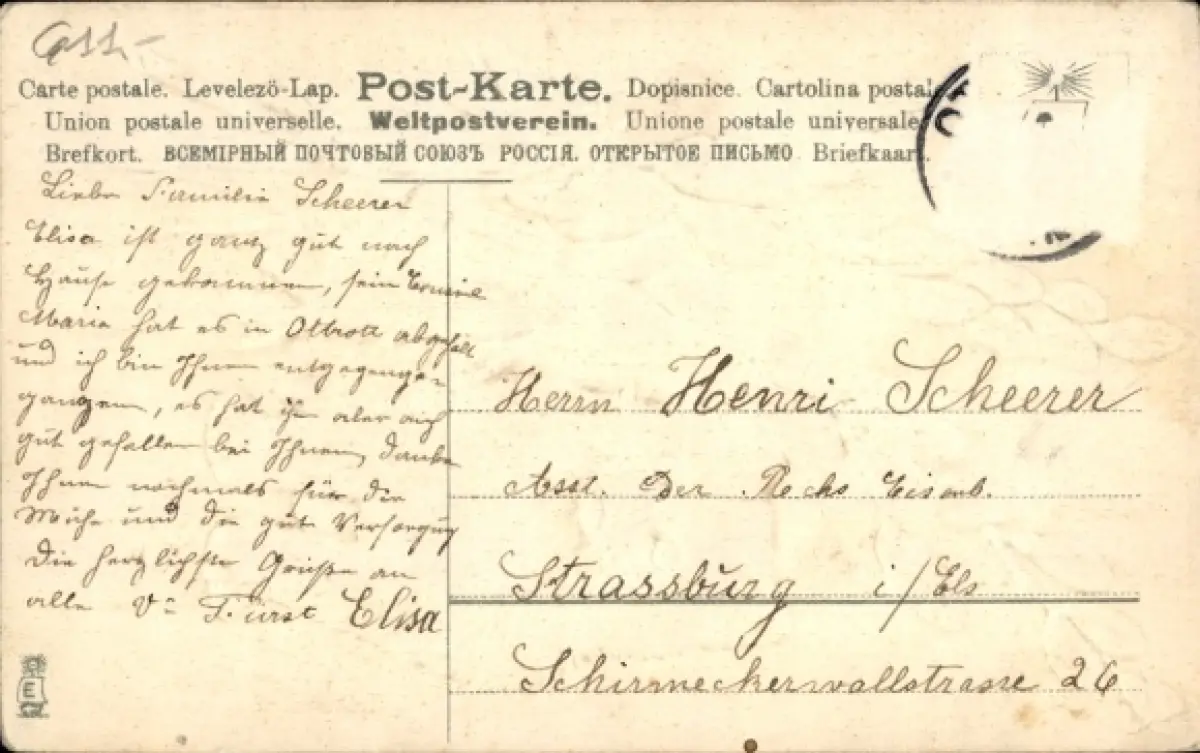 Carte postale. Levelezö-Lap. Post-Karte. Dopisnice. Cartolina postal
Union postale universelle. Weltpostverein. Unione postale universale
Brefkort. ВСЕМІРНЫЙ ПОЧТОВЫЙ СОЮЗЪ РОССІЯ. ОТКРЫТОЕ ПИСЬМО Briefkaart.
Liebe Familie Scheerer
Elisa ist ganz gut nach
Hause gekommen, sein
Maria hat es in Ottrott abgeholt
und ich bin Ihnen entgegenge-
gangen, es hat ihr aber auch
gut gefallen bei Ihnen, danke
Ihnen nochmals für die
Mühe und die gute Versorgung
Die herzlichste Grüße an
alle Vᵉ Fürst Elisa
Herrn Henri Scheerer
Asst. Der Rechs Eisenb.
Strassburg i/Els
Schirmeckerwallstrasse 26
E